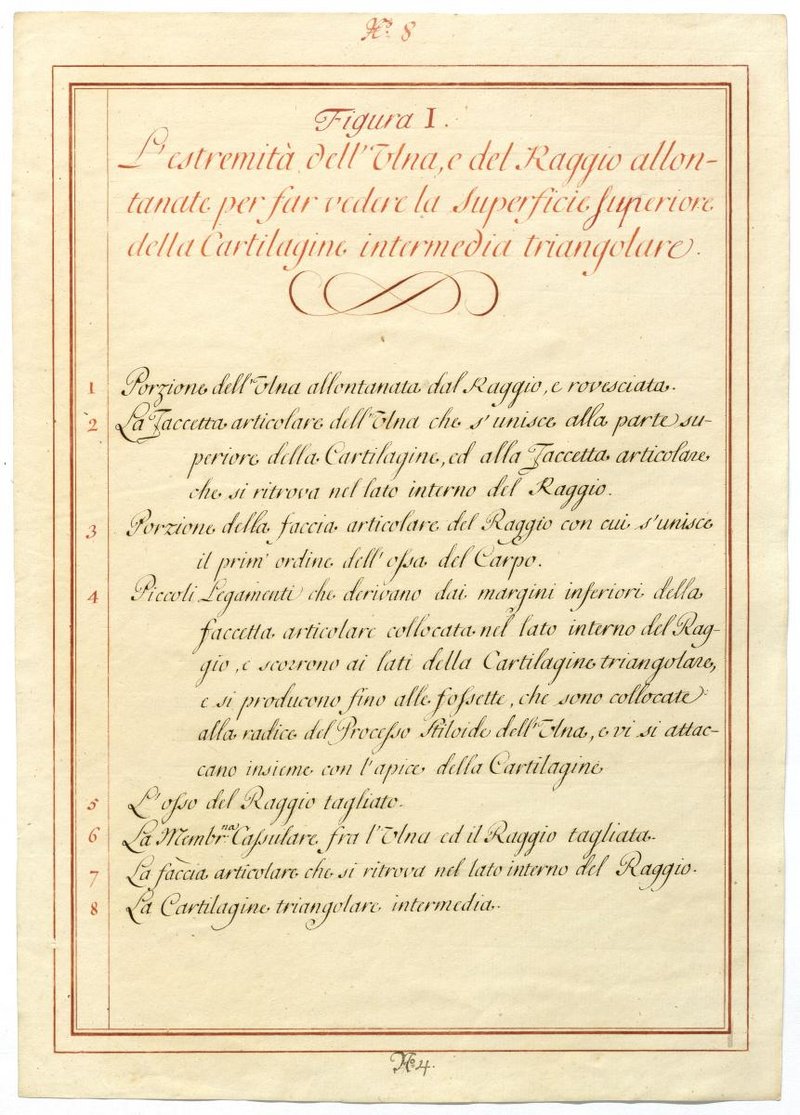 N.º 8
Figura I.
L'estremità dell'Ulna, e del Raggio allon-
tanate per far vedere la Superficie superiore
della Cartilagine intermedia triangolare.
1 Porzione dell'Ulna allontanata dal Raggio, e rovesciata.
2 La Faccetta articolare dell'Ulna che s'unisce alla parte su-
periore della Cartilagine, ed alla Faccetta articolare
che si ritrova nel lato interno del Raggio.
3 Porzione della faccia articolare del Raggio con cui s'unisce
il prim' ordine dell'ossa del Carpo.
4 Piccoli Legamenti che derivano dai margini inferiori della
faccetta articolare collocata nel lato interno del Rag-
gio, e scorrono ai lati della Cartilagine triangolare,
e si producono fino alle fossette, che sono collocate
alla radice del Processo Stiloide dell'Ulna, e vi si attac-
cano insieme con l'apice della Cartilagine
5 L'osso del Raggio tagliato.
6 La Membr.na Cassulare fra l'Ulna ed il Raggio tagliata.
7 La faccia articolare che si ritrova nel lato interno del Raggio.
8 La Cartilagine triangolare intermedia.
N.º 4.